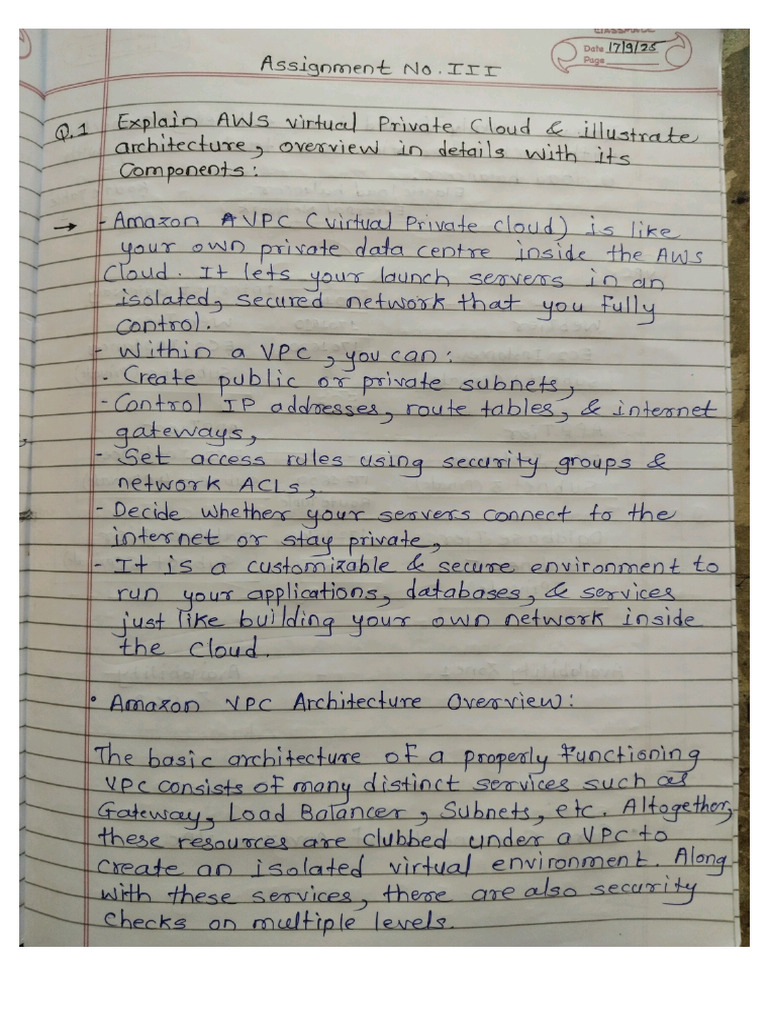 CLASSMATE
Date 17/9/25
Page
Assignment No. III
Q.1 Explain AWS virtual Private Cloud & illustrate
architecture, overview in details with its
Components:
→ - Amazon AVPC (virtual Private cloud) is like
your own private data centre inside the AWS
Cloud. It lets your launch servers in an
isolated, secured network that you fully
control.
- Within a VPC, you can:
- Create public or private subnets,
- Control IP addresses, route tables, & internet
gateways,
- Set access rules using security groups &
network ACLs,
- Decide whether your servers connect to the
internet or stay private,
- It is a customizable & secure environment to
run your applications, databases, & services
just like building your own network inside
the Cloud.
• Amazon VPC Architecture Overview:
The basic architecture of a properly functioning
VPC consists of many distinct services such as
Gateway, Load Balancer, Subnets, etc. Altogether,
these resources are clubbed under a VPC to
create an isolated virtual environment. Along
with these services, there are also security
checks on multiple levels.